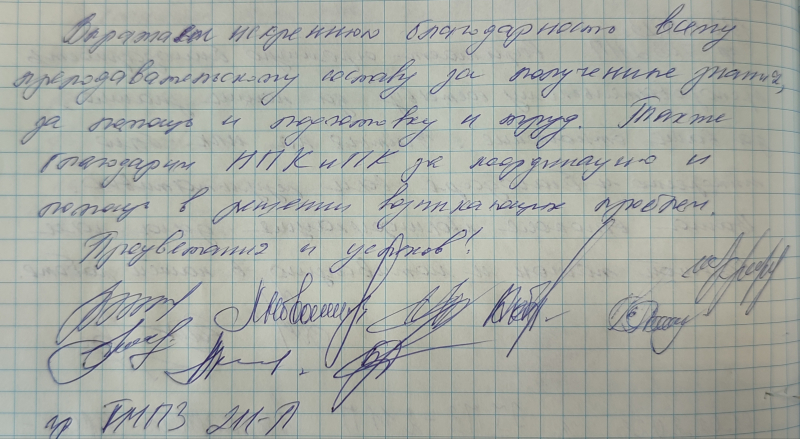 Выражаем искреннюю благодарность всему
преподавательскому составу за полученные знания,
за помощь и подготовку и труд. Также
благодарим НПК и ПК за координацию и
помощь в решении возникающих проблем.
Процветания и успехов!
гр ТМПЗ 211-Л